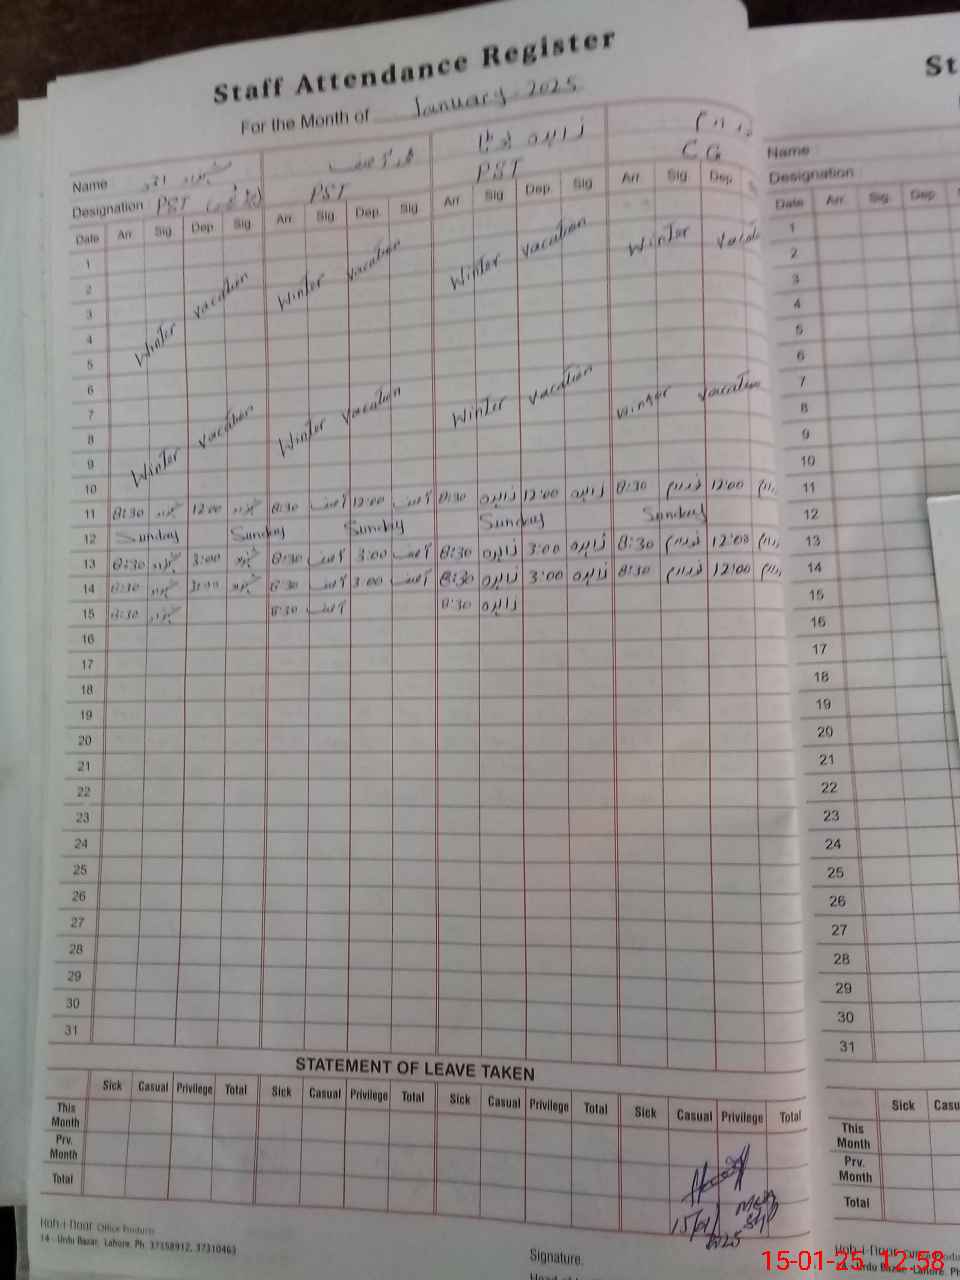 Staff Attendance Register
For the Month of January 2025
Name شہزاد
Designation PST PST PST CG
Date Arr. Sig. Dep. Sig. Arr. Sig. Dep. Sig. Arr. Sig. Dep. Sig. Arr. Sig. Dep.
1
2
3
4
5
Winter vacation Winter vacation Winter vacation Winter
6
7
8
9
10
Winter vacation Winter vacation Winter vacation Winter vacation
11 8:30 12:00 8:30 آصف 12:00 آصف 8:30 زاہدہ 12:00 زاہدہ 8:30 12:00
12 Sunday Sunday Sunday Sunday Sunday
13 8:30 3:00 8:30 آصف 3:00 آصف 8:30 زاہدہ 3:00 زاہدہ 8:30 12:00
14 8:30 3:00 8:30 آصف 3:00 آصف 8:30 زاہدہ 3:00 زاہدہ 8:30 12:00
15 8:30 8:30 آصف 8:30 زاہدہ
16
17
18
19
20
21
22
23
24
25
26
27
28
29
30
31
STATEMENT OF LEAVE TAKEN
Sick Casual Privilege Total Sick Casual Privilege Total Sick Casual Privilege Total Sick Casual Privilege Total
This Month
Prv. Month
Total
15/01/2025
Koh-i-Noor Office Products
14 - Urdu Bazar, Lahore. Ph: 37158912, 37310463
Signature.
St
Name
Designation
Date Arr. Sig. Dep.
1
2
3
4
5
6
7
8
9
10
11
12
13
14
15
16
17
18
19
20
21
22
23
24
25
26
27
28
29
30
31
Sick Casu
This Month
Prv. Month
Total
Koh-i-Noor
Urdu Bazar, Lahore.
15-01-25 12:58